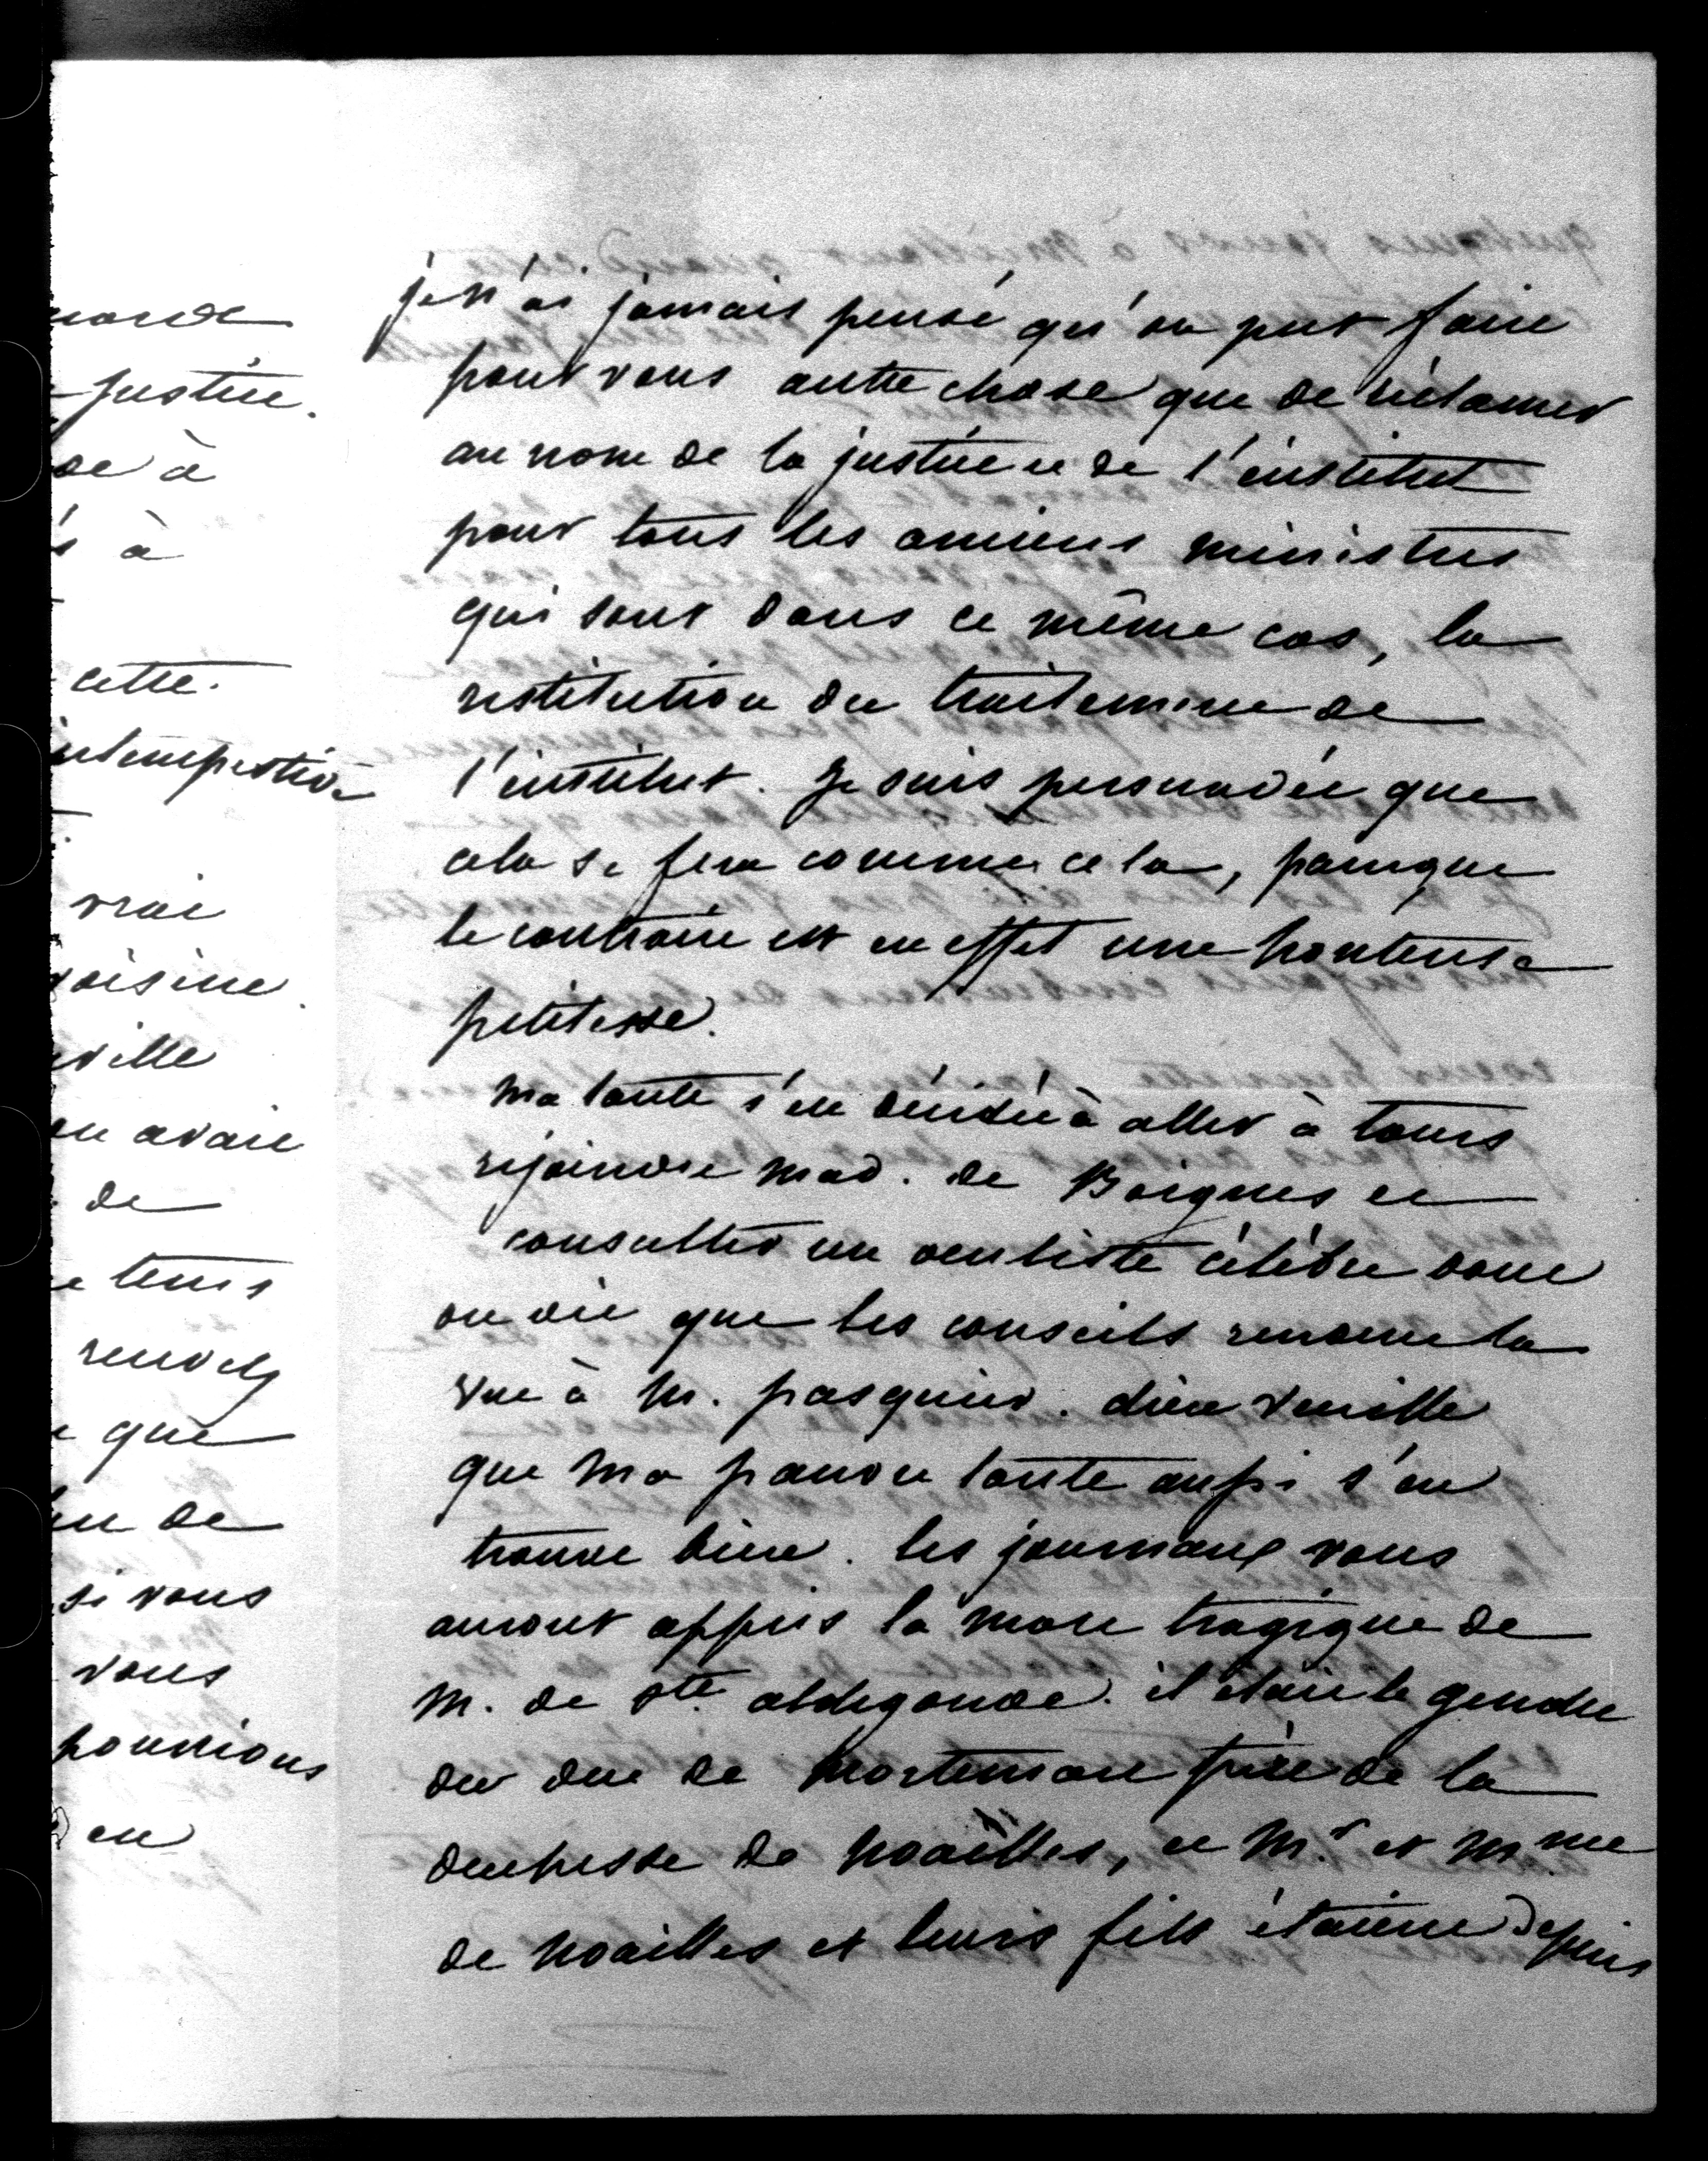 je n'ai jamais pensé qu'on put faire
pour vous autre chose que de réclamer
au nom de la justice et de l'institut
pour tous les anciens ministres
qui sont dans ce même cas, la
restitution du traitement de
l'institut. Je suis persuadée que
cela se fera comme cela, parceque
le contraire est en effet une honteuse
petitesse.
ma tante s'est décidée à aller à tours
rejoindre mad. de Boignes et
consulter un oculiste célèbre dont
on dit que les conseils rendent la
vue à M. pasquier. dieu veuille
que ma pauvre tante aussi s'en
trouve bien. les journaux vous
auront appris la mort tragique de
M. de Ste aldegonde. il était le gendre
du duc de Mortemart frère de la
duchesse de Noailles, et Mr et Mme
de Noailles et leurs fils étaient depuis
justice.
de à
s à
cette
intempestive
vrai
voisine
ville
on avait
de
tems
rendez
que
de
si vous
vous
pourrions
en